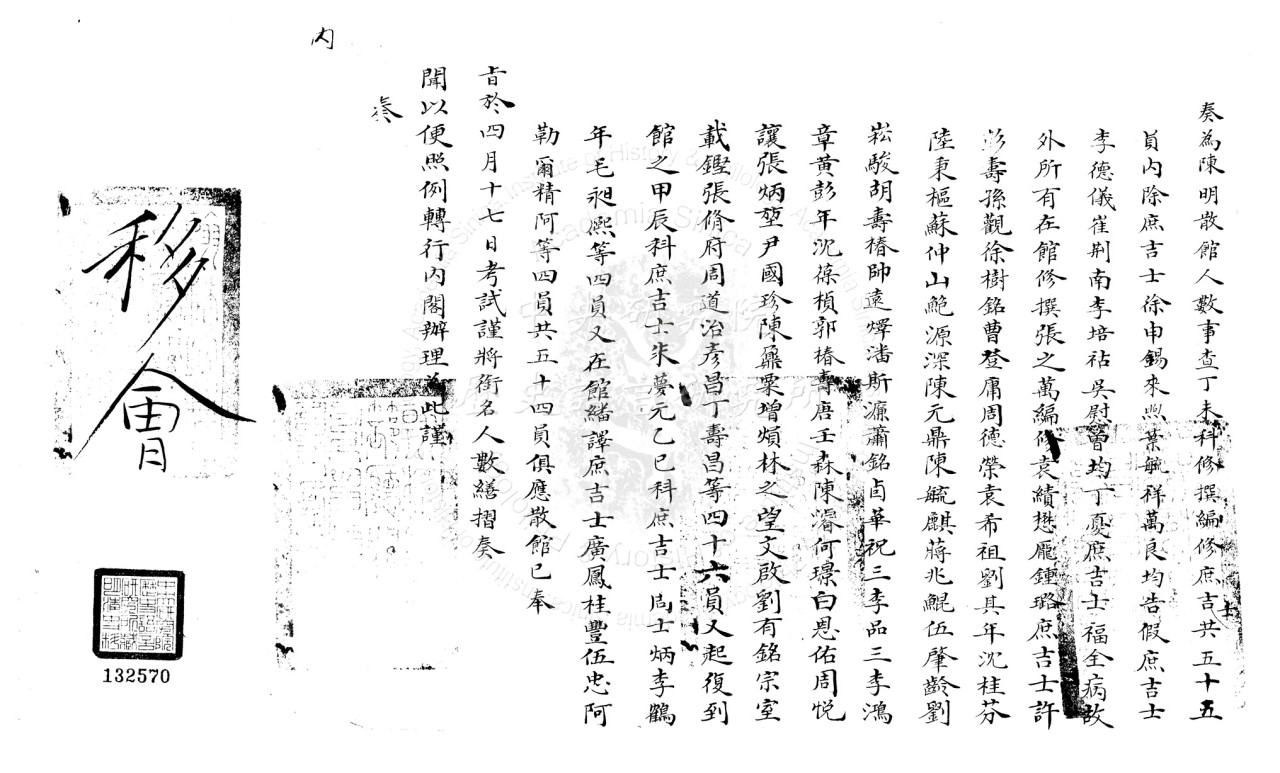 奏為陳明散館人數事查丁未科修撰編修庶吉士共五十五
員內除庶吉士徐申錫來煦葉毓祥萬良均告假庶吉士
李德儀崔荊南李培祜吳尉曾均丁憂庶吉士福全病故
外所有在館修撰張之萬編修袁績懋龐鍾璐庶吉士許
彭壽孫觀徐樹銘曹登庸周德榮袁希祖劉其年沈桂芬
陸秉樞蘇仲山鮑源深陳元鼎陳毓麒蔣兆鯤伍肇齡劉
崧駿胡壽椿帥遠燡潘斯濂蕭銘卣華祝三李品三李鴻
章黃彭年沈葆楨郭椿壽唐壬森陳濬何璟白恩佑周悅
讓張炳堃尹國珍陳鼐栗增熉林之望文啟劉有銘宗室
載鏗張脩府周道治彥昌丁壽昌等四十六員又起復到
館之甲辰科庶吉士朱夢元乙巳科庶吉士周士炳李鶴
年毛昶熙等四員又在館繙譯庶吉士廣鳳桂豐伍忠阿
勒爾精阿等四員共五十四員俱應散館已奉
旨於四月十七日考試謹將銜名人數繕摺奏
聞以便照例轉行內閣辦理為此謹
奏
內
移會
中央研究院歷史語言研究所藏明清史料
132570
中央研究院
歷史語言研究所
Institute of History & Philology, Academia Sinica